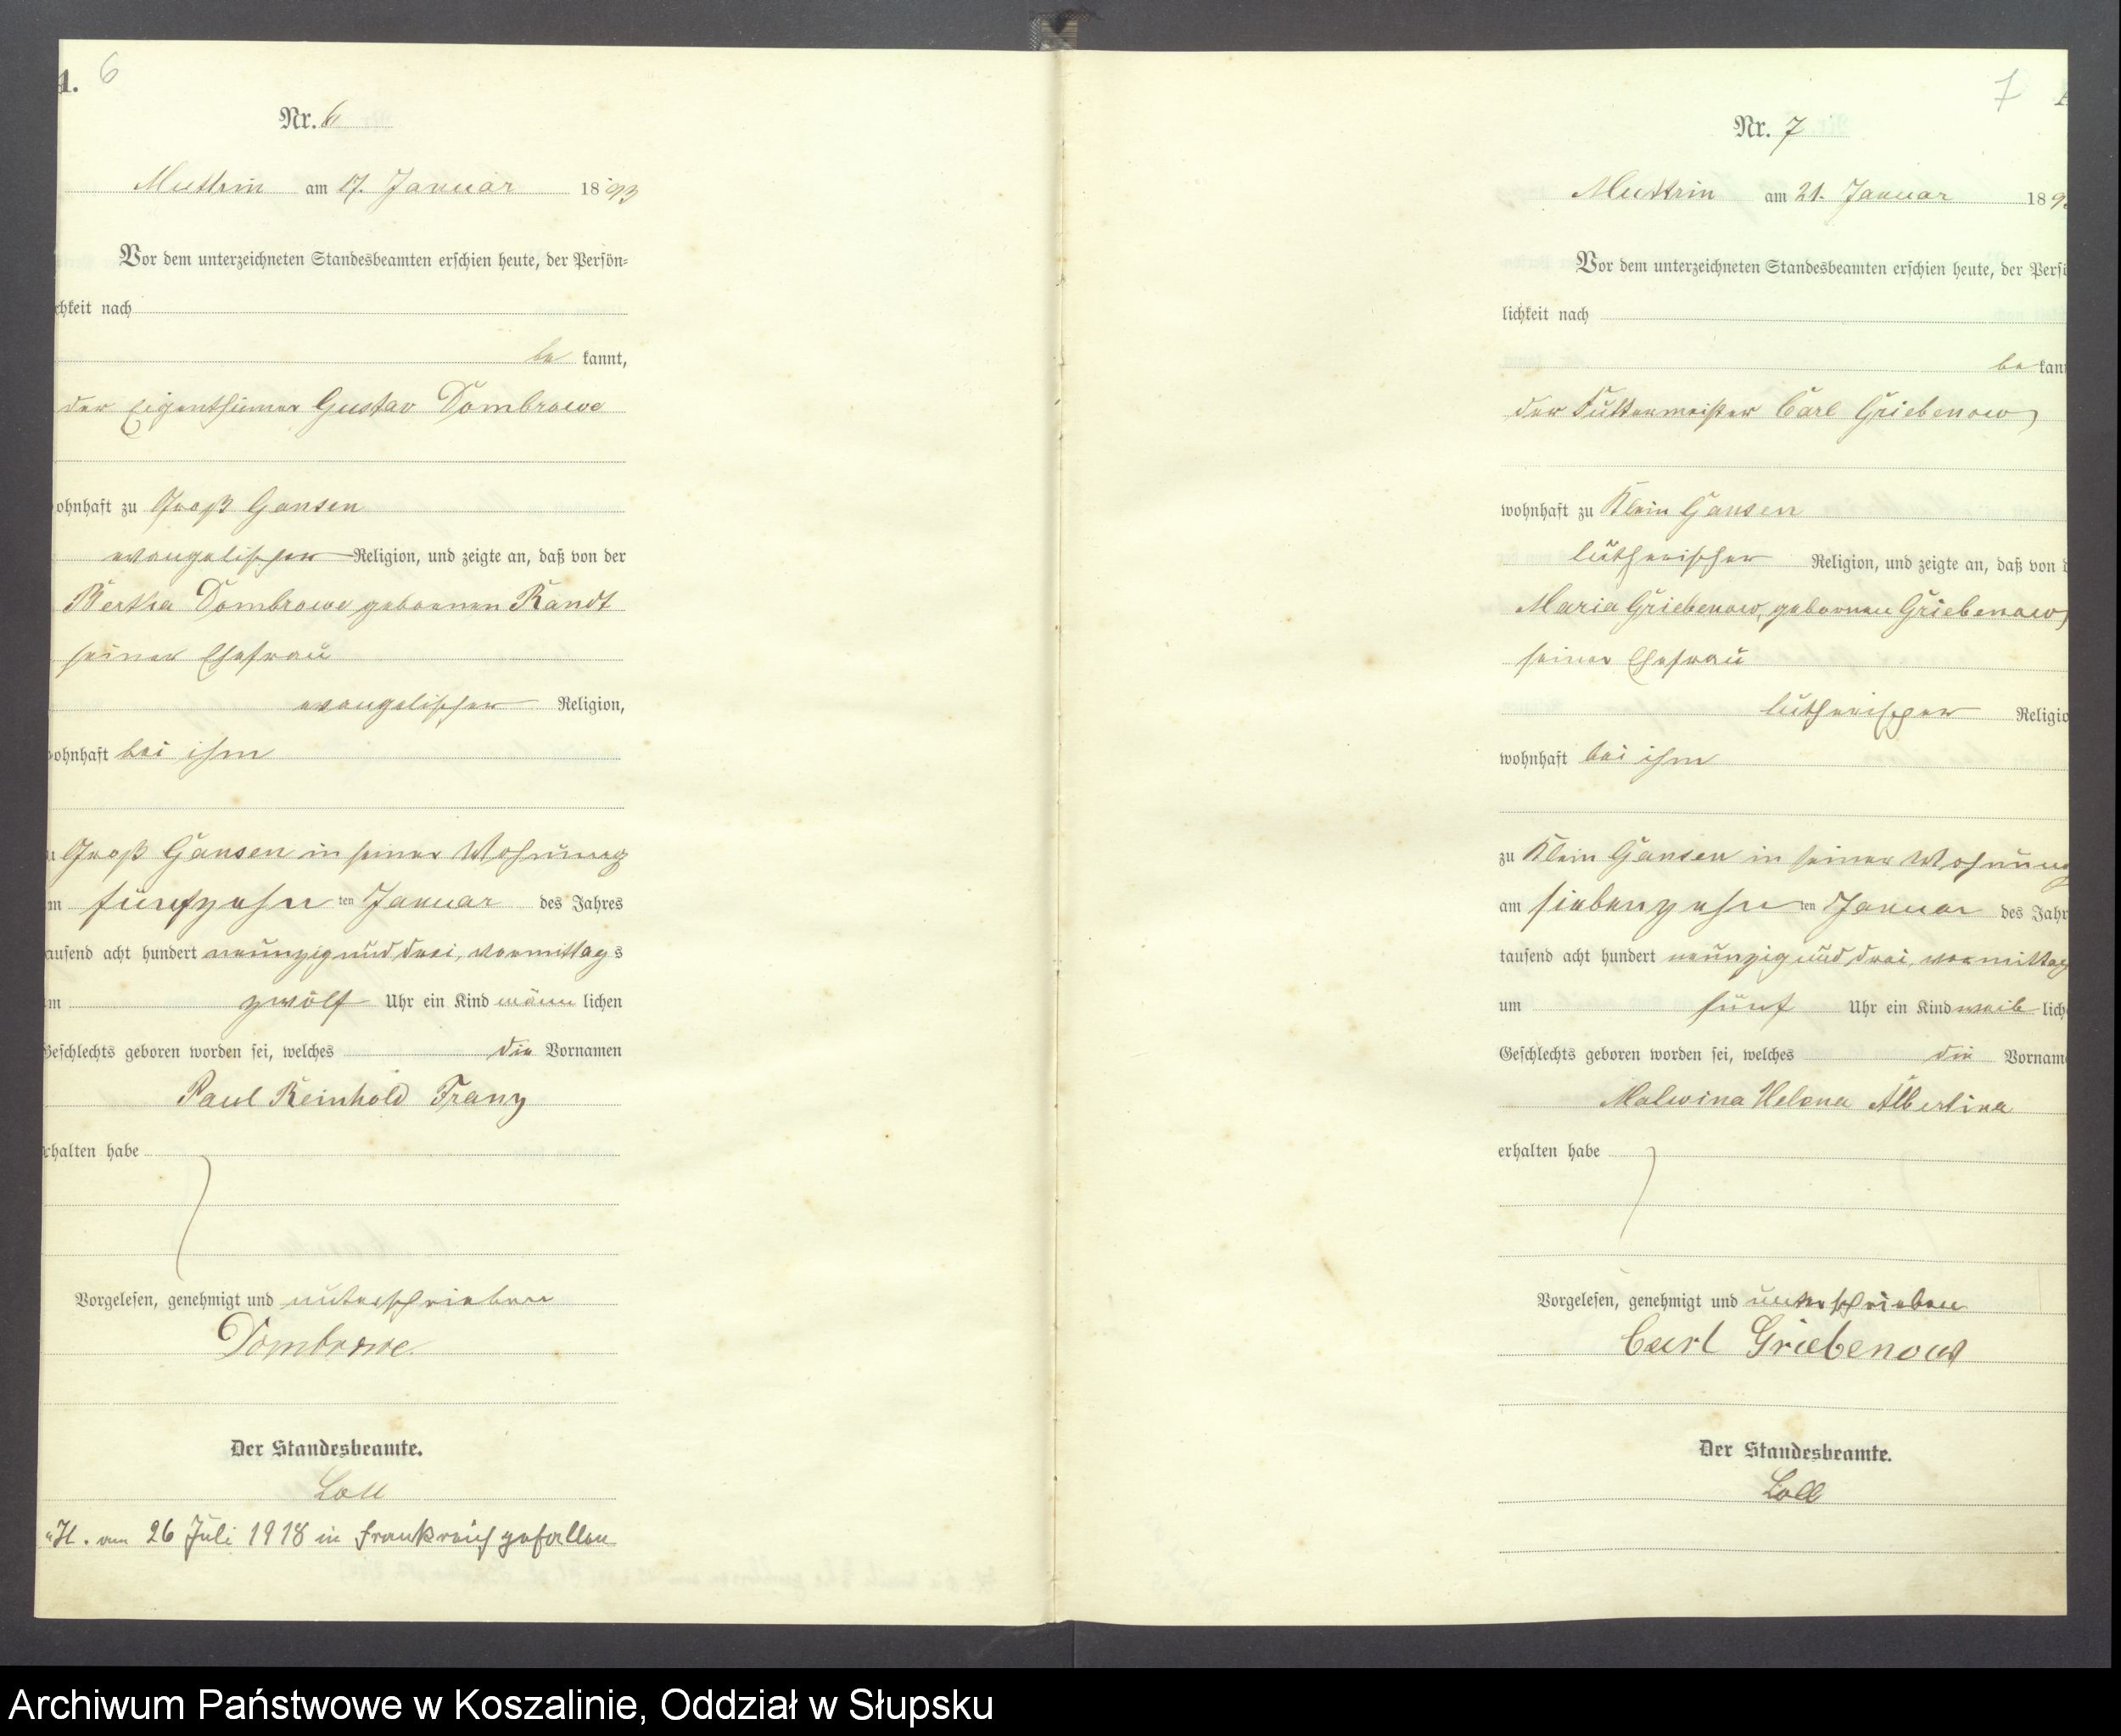 1.
6
Nr. 6
Muttrin am 17. Januar 1893
Vor dem unterzeichneten Standesbeamten erschien heute, der Persön-
chkeit nach
be kannt,
der Eigenthümer Gustav Dombrowe
ohnhaft zu Groß Gansen
evangelischer Religion, und zeigte an, daß von der
Bertha Dombrowe geborenen Randt
seiner Ehefrau
evangelischer Religion,
ohnhaft bei ihm
Groß Gansen in seiner Wohnung
m fünfzehn ten Januar des Jahres
ausend acht hundert neunzig und drei, vormittag s
m zwölf Uhr ein Kind männ lichen
Geschlechts geboren worden sei, welches die Vornamen
Paul Reinhold Franz
rhalten habe
Vorgelesen, genehmigt und unterschrieben
Dombrowe
Der Standesbeamte.
Loll
am 26 Juli 1918 in Frankreich gefallen
7
Nr. 7
Muttrin am 21. Januar 189
Vor dem unterzeichneten Standesbeamten erschien heute, der Persö
lichkeit nach
be kan
der Futtermeister Carl Griebenow,
wohnhaft zu Klein Gansen
lutherischer Religion, und zeigte an, daß von d
Maria Griebenow, gebornen Griebenow,
seiner Ehefrau
lutherischer Religio
wohnhaft bei ihm
zu Klein Gansen in seiner Wohnung
am siebenzehn ten Januar des Jahr
tausend acht hundert neunzig und drei, vormittag
um fünf Uhr ein Kind weib lich
Geschlechts geboren worden sei, welches die Vornam
Malwina Helena Albertina
erhalten habe
Vorgelesen, genehmigt und unterschrieben
Carl Griebenow
Der Standesbeamte.
Loll
Archiwum Państwowe w Koszalinie, Oddział w Słupsku